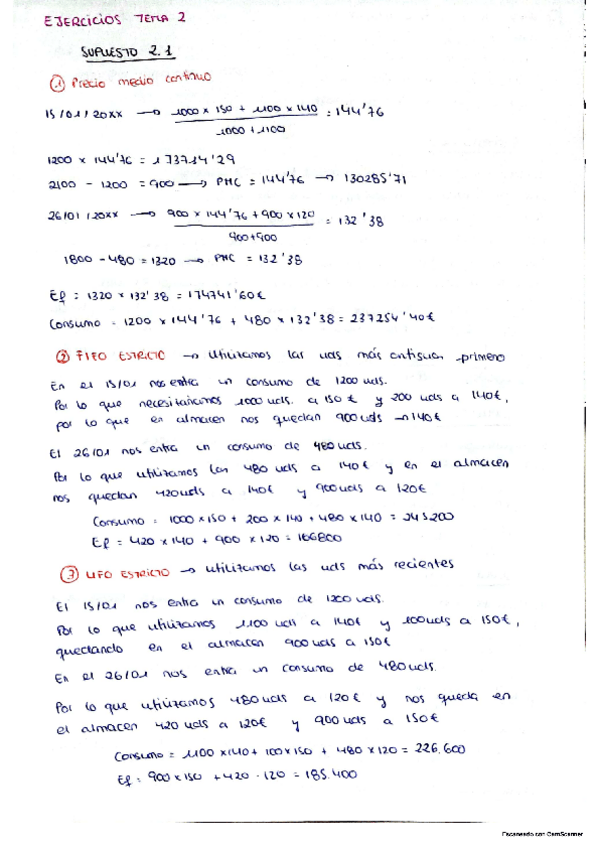 EJERCICIOS TEMA 2
SUPUESTO 2.1
① Precio medio continuo
15/01/20XX → 1000 x 150 + 1100 x 140 / 1000 + 1100 = 144'76
1200 x 144'76 = 173714'29
2100 - 1200 = 900 → PMC = 144'76 → 130285'71
26/01/20XX → 900 x 144'76 + 900 x 120 / 900 + 900 = 132'38
1800 - 480 = 1320 → PMC = 132'38
Ef = 1320 x 132'38 = 174741'60€
Consumo = 1200 x 144'76 + 480 x 132'38 = 237254'40€
② FIFO ESTRICTO → Utilizamos las uds más antiguas primero
En el 15/01 nos entra un consumo de 1200 uds.
Por lo que necesitaríamos 1000 uds. a 150 € y 200 uds a 140€,
por lo que en almacen nos quedan 900 uds → 140€
El 26/01 nos entra un consumo de 480 uds.
Por lo que utilizamos las 480 uds a 140€ y en el almacen
nos quedan 420 uds a 140€ y 900 uds a 120€
Consumo = 1000 x 150 + 200 x 140 + 480 x 140 = 245200
Ef = 420 x 140 + 900 x 120 = 166800
③ LIFO ESTRICTO → utilizamos las uds más recientes
El 15/01 nos entra un consumo de 1200 uds.
Por lo que utilizamos 1100 uds a 140€ y 100 uds a 150€,
quedando en el almacen 900 uds a 150€
En el 26/01 nos entra un consumo de 480 uds.
Por lo que utilizamos 480 uds a 120€ y nos queda en
el almacen 420 uds a 120€ y 900 uds a 150€
Consumo = 1100 x 140 + 100 x 150 + 480 x 120 = 226.600
Ef = 900 x 150 + 420 · 120 = 185.400
Escaneado con CamScanner